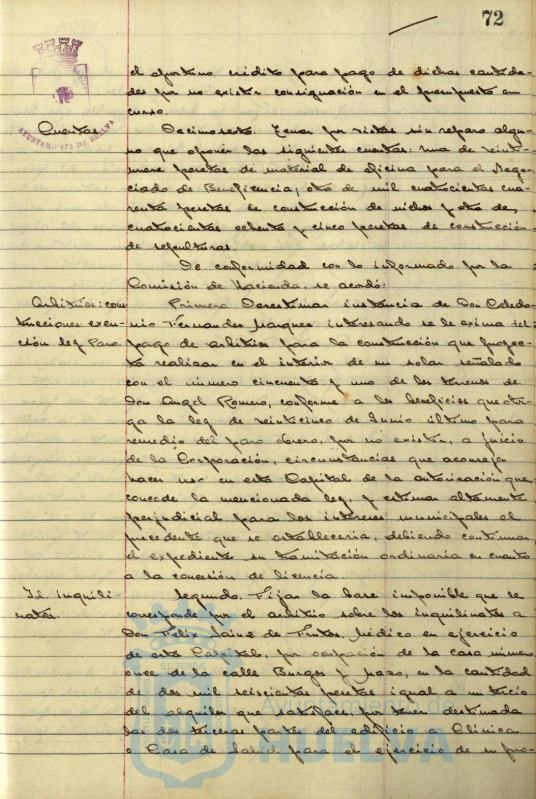 72
el oportuno crédito para pago de dichas cantida-
des por no existir consignación en el presupuesto en
curso.
Cuentas. Decimosexto. Tener por vistas sin reparo algu-
no que oponer las siguientes cuentas: una de veinti-
nueve pesetas de material de oficina para el Nego-
ciado de Beneficencia; otra de mil cuatrocientas cua-
renta pesetas de construcción de nichos y otra de
cuatrocientas ochenta y cinco pesetas de construcción
de sepulturas.
De conformidad con lo informado por la
Comisión de Hacienda, se acordó:
Arbitrios: cons- Primero. Desestimar instancia de Don Celedo-
trucciones exen- nio Fernandez Marquez interesando se le exima del
ción ley Paro. pago de arbitrios para la construcción que proyec-
ta realizar en el interior de un solar señalado
con el número cincuenta y uno de los terrenos de
Don Angel Romero, conforme a los beneficios que otor-
ga la ley de veinticinco de Junio último para
remedio del paro obrero, por no existir, a juicio
de la Corporación, circunstancias que aconsejen
hacer uso en esta Capital de la autorización que
concede la mencionada ley, y estimar altamente
perjudicial para los intereses municipales el
precedente que se establecería, debiendo continuar
el expediente su tramitación ordinaria en cuanto
a la concesión de licencia.
Id. inquili- Segundo. Fijar la base imponible que le
natos. corresponde por el arbitrio sobre los inquilinatos a
Don Felix Sainz de Frutos, Médico en ejercicio
de esta Capital, por ocupación de la casa número
once de la calle Burgos y Mazo, en la cantidad
de dos mil seiscientas pesetas igual a un tercio
del alquiler que satisface, por tener destinada
las dos terceras partes del edificio a Clínica
o Casa de Salud para el ejercicio de su pro-
AYUNTAMIENTO DE HUELVA
Ayuntamiento de
HUELVA